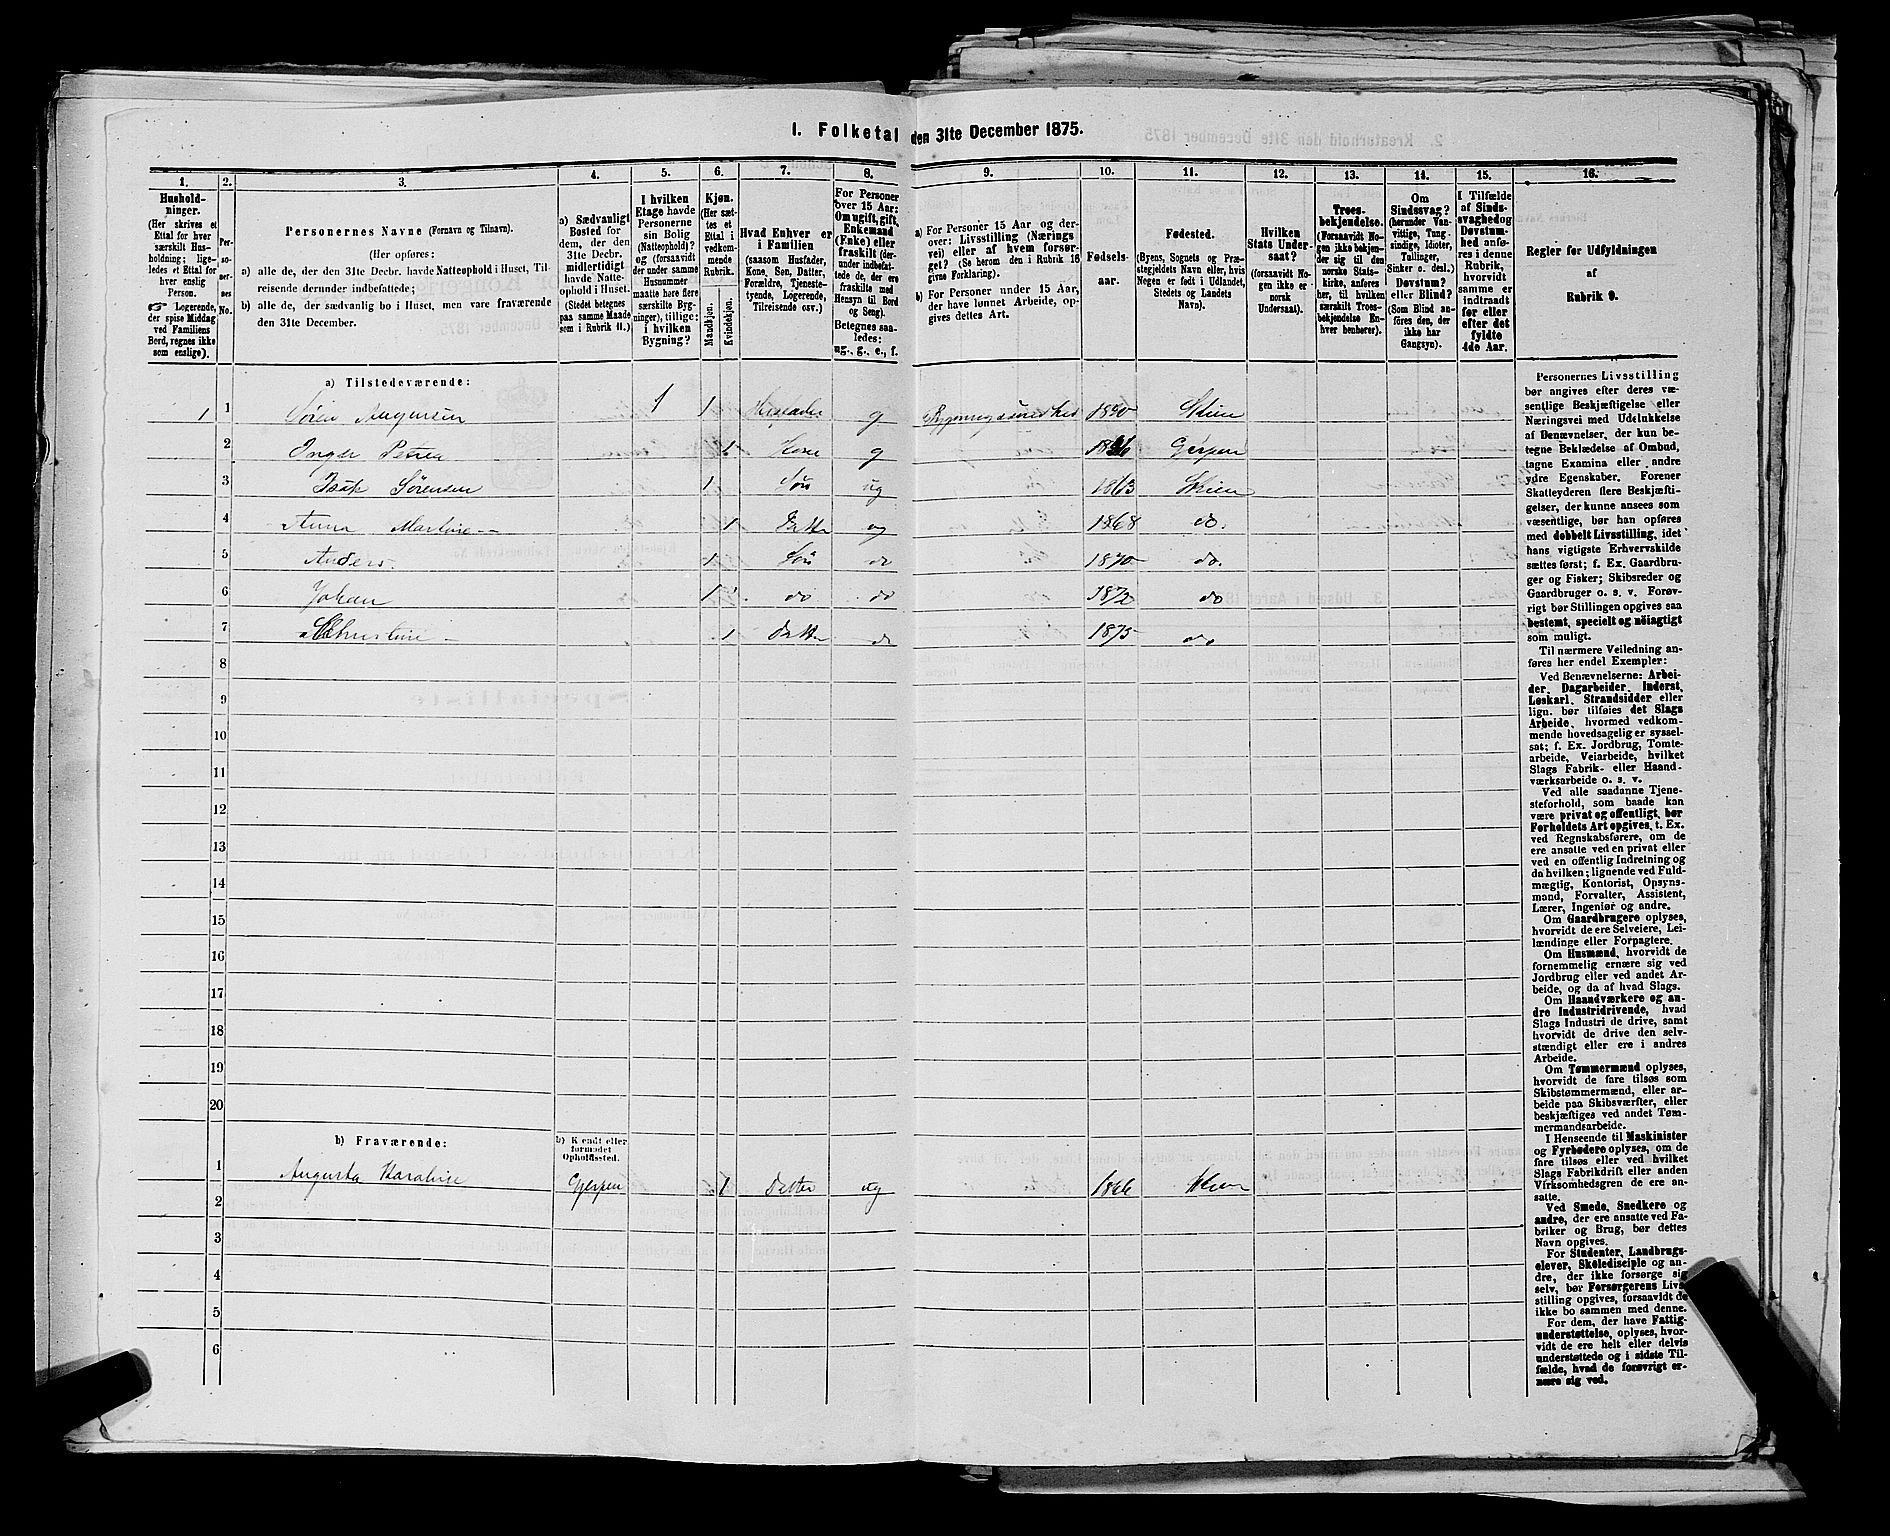 1. Folketal den 31te December 1875.
1. 2. 3. 4. 5. 6. 7. 8. 9. 10. 11. 12. 13. 14. 15. 16.
Hushold-
ninger.
(Her skrives et
Ettal for hver
særskilt Hus-
holdning; lige-
ledes et Ettal for
hver enslig
Person.
Logerende,
der spise Middag
ved Familiens
Bord, regnes ikke
som enslige).
Per-
so-
ner-
nes
No.
Personernes Navne (Fornavn og Tilnavn).
(Her opføres:
a) alle de, der den 31te Decbr. havde Natteophold i Huset, Til-
reisende derunder indbefattede;
b) alle de, der sædvanlig bo i Huset, men vare fraværende
den 31te December.
a) Sædvanligt
Bosted for
dem, der den
31te Decbr.
midlertidigt
havde Natte-
ophold i Huset.
(Stedet betegnes
paa samme Maade
som i Rubrik 11.)
I hvilken
Etage havde
Personerne
sin Bolig
(Natteophold)?
og (forsaavidt
der under samme
Husnummer
maatte høre flere
særskilte Byg-
ninger), tillige:
i hvilken
Bygning?
Kjøn.
(Her sæt-
tes et
Ettal i
vedkom-
mende
Rubrik.
Mandkjøn.
Kvindekjøn.
Hvad Enhver er
i Familien
(saasom Husfader,
Kone, Søn, Datter,
Forældre, Tjeneste-
tyende, Logerende,
Tilreisende osv.)
For Personer
over 15 Aar:
Om ugift, gift,
Enkemand
(Enke) eller
fraskilt (der-
under indbefat-
tede de, der ere
fraskilte med
Hensyn til Bord
og Seng).
Betegnes saa-
ledes:
ug., g., e., f.
a) For Personer 15 Aar og der-
over: Livsstilling (Nærings-
vei) eller af hvem forsør-
get? (Se herom den i Rubrik 16
givne Forklaring).
b) For Personer under 15 Aar,
der have lønnet Arbeide, op-
gives dettes Art.
Fødsels-
aar.
Fødested.
(Byens, Sognets og Præ-
stegjeldets Navn eller, hvis
Negen er født i Udlandet,
Stedets og Landets
Navn).
Hvilken
Stats Under-
saat?
(forsaavidt No-
gen ikke er
norsk
Undersaat).
Troes-
bekjendelse.
(Forsaavidt No-
gen ikke bekjen-
der sig til den
norske Stats-
kirke, anføres
her, til hvilken
særskilt Troes-
bekjendelse En-
hver henhører).
Om
Sindssvag?
(herunder Van-
vittige, Tung-
sindige, Idioter,
Tullinger,
Sinker o. desl.)
Døvstum?
eller Blind?
(Som Blind an-
føres den, der
ikke har
Gangsyn).
I Tilfælde
af Sinds-
svaghed og
Døvstum-
hed anfø-
res i denne
Rubrik,
hvorvidt
samme er
indtraadt
før eller
efter det
fyldte
4de Aar.
Regler for Udfyldningen
af
Rubrik 9.
a) Tilstedeværende:
1 1 Søren Augensen 1 1 Husfader g 1840 Skien
2 Inger Petrea 1 Kone g Gjerpen
3 Isak Sørensen 1 Søn ug 1863 Skien
4 Anna Martine 1 Datter ug 1868 do.
5 Anders 1 Søn do 1870 do.
6 Johan 1 do do 1872 do
7 1 Datter do 1875 do
8
9
10
11
12
13
14
15
16
17
18
19
20
b) Fraværende:
b) Kjendt eller
formodet
Opholdssted.
1 Augusta Karoline Gjerpen 1 Datter ug 1866 Skien
2
3
4
5
6
Personernes Livsstilling
bør angives efter deres væ-
sentlige Beskjæftigelse eller
Næringsvei med Udelukkelse
af Benævnelser, der kun be-
tegne Beklædelse af Ombud,
tagne Examina eller andre
ydre Egenskaber. Forener
Skatteyderen flere Beskjæfti-
gelser, der kunne ansees som
væsentlige, bør han opføres
med dobbelt Livsstilling, idet
hans vigtigste Erhvervskilde
sættes først; f. Ex. Gaardbru-
ger og Fisker; Skibsreder og
Gaardbruger o. s. v. Forøv-
rigt bør Stillingen opgives saa
bestemt, specielt og nøiagtigt
som muligt.
Til nærmere Veiledning an-
føres her endel Exempler:
Ved Benævnelserne: Arbei-
der, Dagarbeider, Inderst,
Løskarl, Strandsidder eller
lign. bør tilføies det Slags
Arbeide, hvormed vedkom-
mende hovedsagelig er syssel-
sat; f. Ex. Jordbrug, Tomte-
arbeide, Veiarbeide, hvilket
Slags Fabrik- eller Haand-
værksarbeide o. s. v.
Ved alle saadanne Tjene-
steforhold, som baade kan
være privat og offentligt, bør
Forholdets Art opgives, t. Ex.
ved Regnskabsførere, om de
ere ansatte ved en privat eller
ved en offentlig Indretning og
da hvilken; lignende ved Fuld-
mægtig, Kontorist, Opsyns-
mand, Forvalter, Assistent,
Lærer, Ingeniør og andre.
Om Gaardbrugere oplyses,
hvorvidt de ere Selveiere, Lei-
lændinge eller Forpagtere.
Om Husmænd, hvorvidt de
fornemmelig ernære sig ved
Jordbrug eller ved andet Ar-
beide, og da af hvad Slags.
Om Haandværkere og an-
dre Industridrivende, hvad
Slags Industri de drive, samt
hvorvidt de drive den selv-
stændigt eller ere i andres
Arbeide.
Om Tømmermænd oplyses,
hvorvidt de fare tilsøs som
Skibstømmermænd, eller ar-
beide paa Skibsværfter, eller
beskjæftiges ved andet Tøm-
mermandsarbeide.
I Henseende til Maskinister
og Fyrbødere oplyses, om de
fare tilsøs eller ved hvilket
Slags Fabrikdrift eller anden
Virksomhedsgren de ere an-
satte.
Ved Smede, Snedkere og
andre, der ere ansatte ved Fa-
briker og Brug, bør dettes
Navn opgives.
For Studenter, Landbrugs-
elever, Skoledisciple og an-
dre, der ikke forsørge sig
selv, bør Forsørgerens Livs-
stilling opgives, forsaavidt de
ikke bo sammen med denne.
For dem, der have Fattig-
understøttelse, oplyses, hvor-
vidt de ere helt eller delvis
understøttede og i sidste Til-
fælde, hvad de forøvrigt er-
nære sig ved.